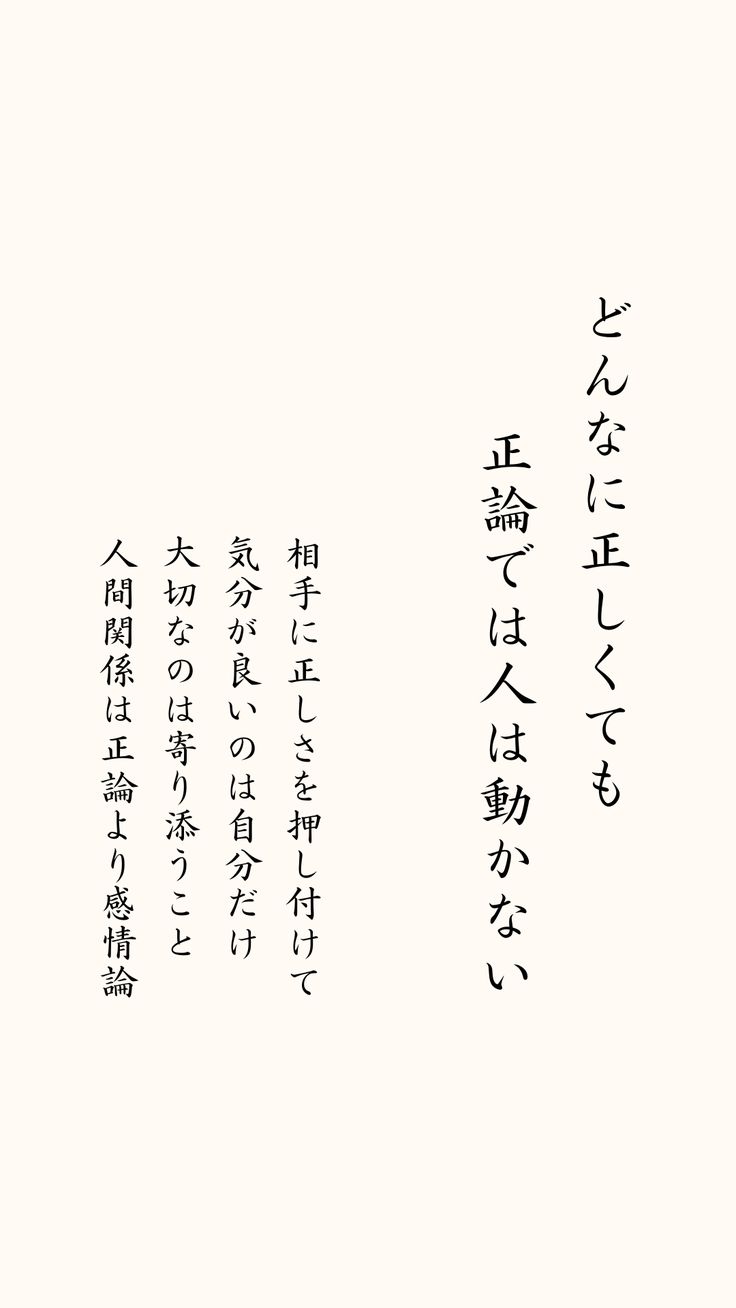 どんなに正しくても
正論では人は動かない
相手に正しさを押し付けて
気分が良いのは自分だけ
大切なのは寄り添うこと
人間関係は正論より感情論